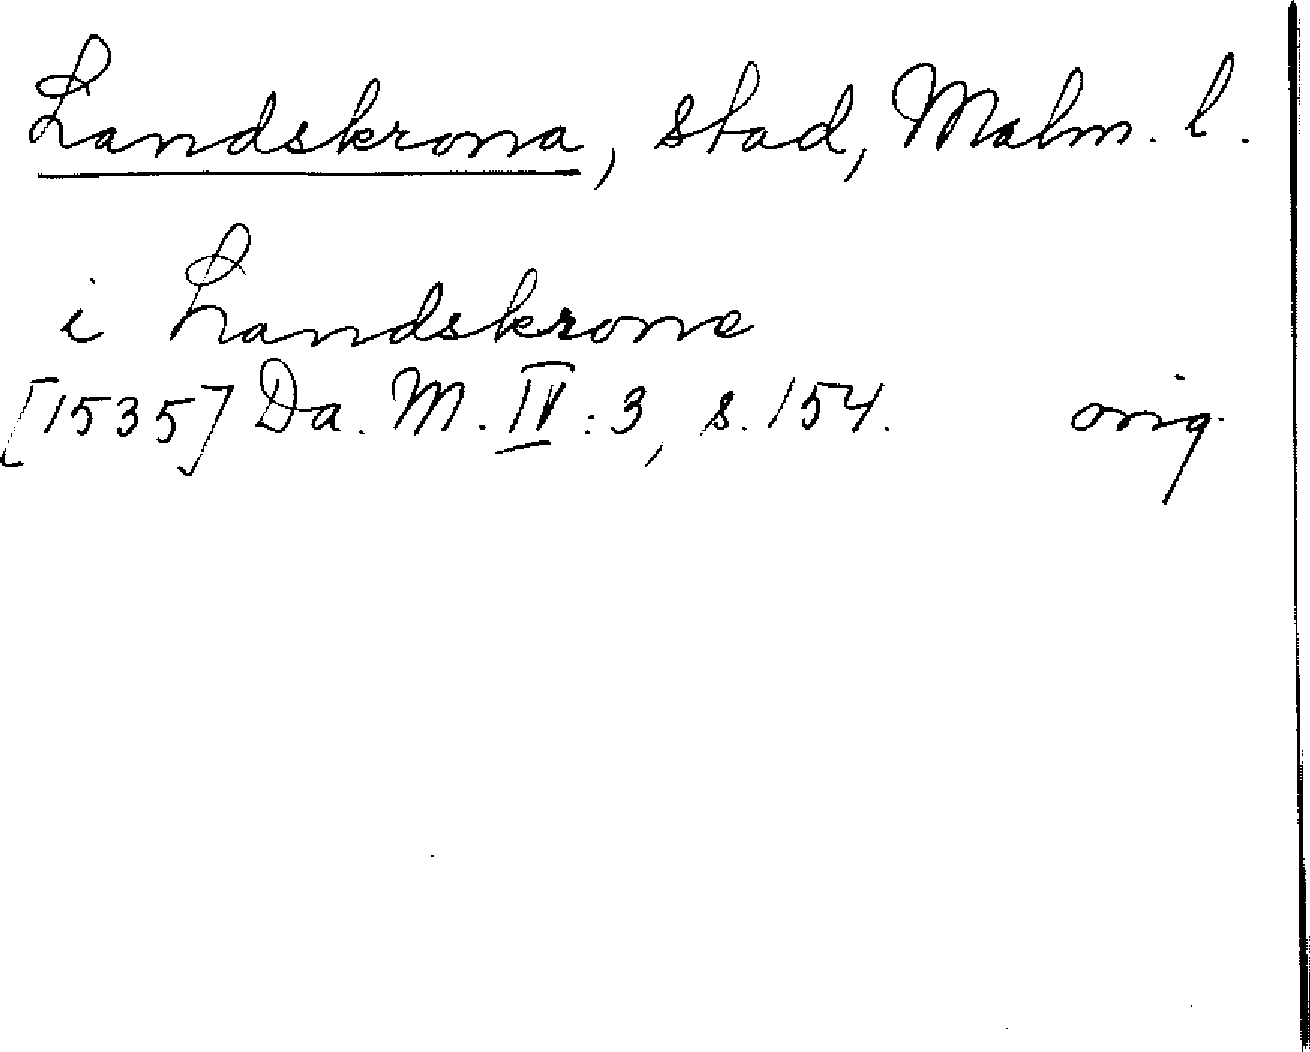 Landskrona, stad, Malm. l.
i Landskrone
[1535] Da. M. IV: 3, s. 154. orig.